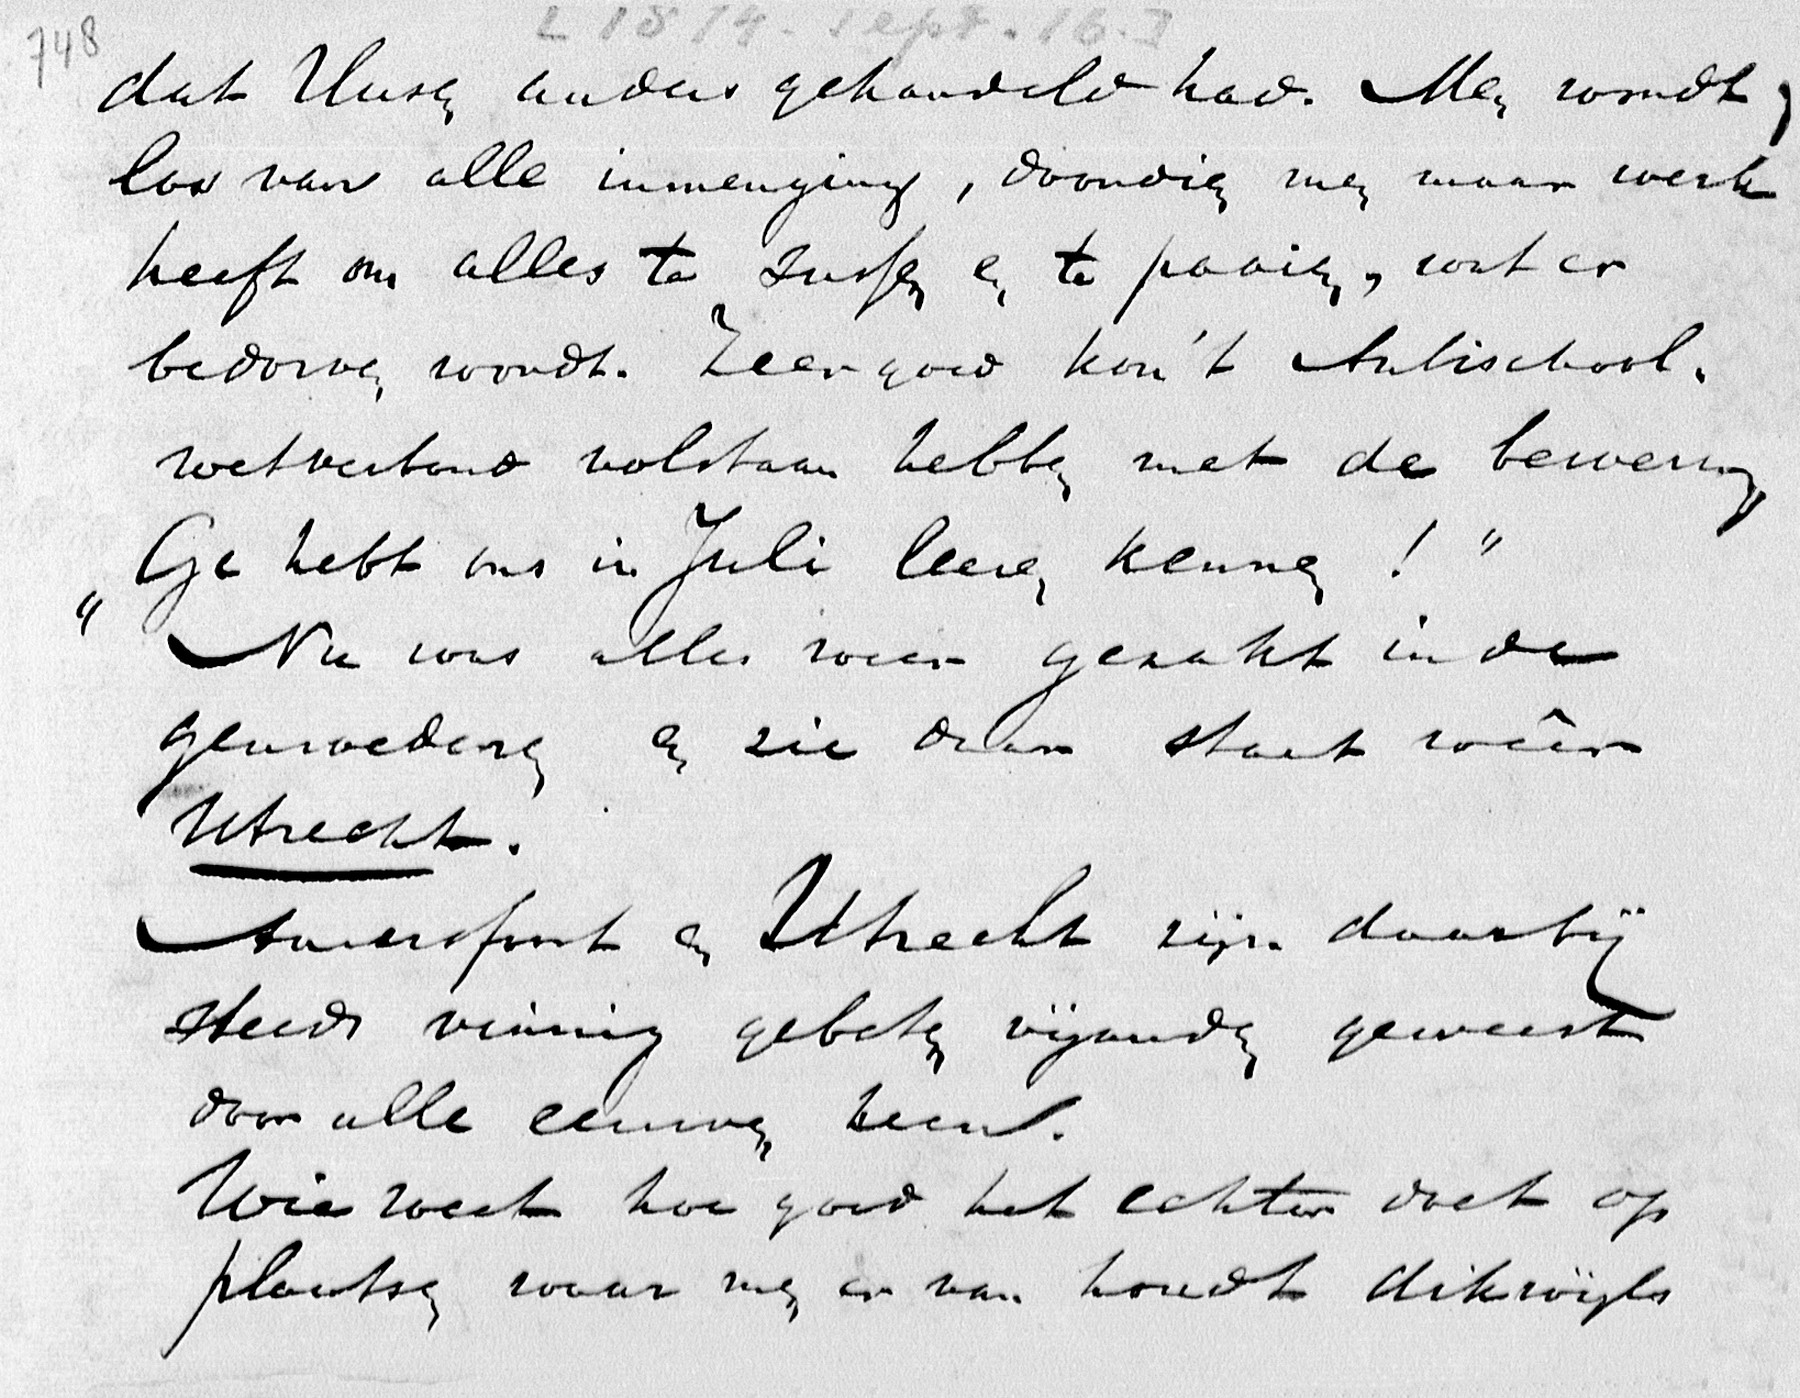 748
[1874. Sept. 16.]
dat Uusen anders gehandeld had. Men wordt
los van alle inmenging, doordien men maar werk
heeft om alles te sussen en te paaien, wat er
bedorven wordt. Zeer goed kon 't Antischool-
wetverbond volstaan hebben met de bewering
„Ge hebt ons in Juli leeren kennen!"
Nu was alles weer gezakt in de
gemoederen en zie daar staat weêr
Utrecht.
Amersfoort en Utrecht zijn daarbij
steeds vinnig gebeten vijanden geweest
door alle eeuwen heen.
Wie weet hoe goed het echter doet op
plaatsen waar men er van houdt dikwijls